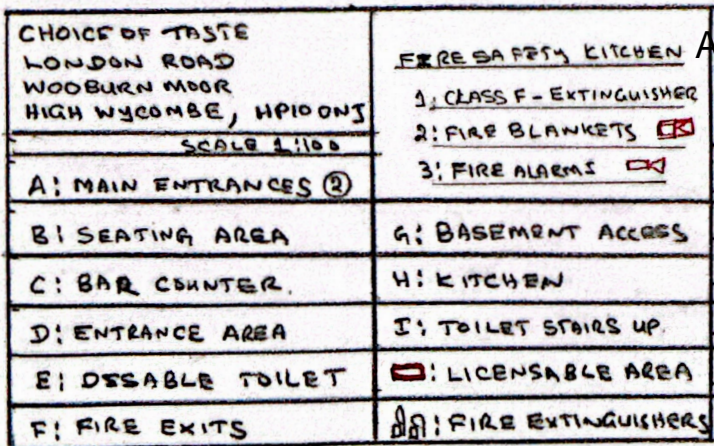 CHOICE OF TASTE
LONDON ROAD
WOOBURN MOOR
HIGH WYCOMBE, HP10 0NJ
SCALE 1:100
A: MAIN ENTRANCES 2
B: SEATING AREA
C: BAR COUNTER.
D: ENTRANCE AREA
E: DISSABLE TOILET
F: FIRE EXITS
FIRE SAFETY KITCHEN A
1: CLASS F - EXTINGUISHER
2: FIRE BLANKETS
3: FIRE ALARMS
G: BASEMENT ACCESS
H: KITCHEN
I: TOILET STAIRS UP.
: LICENSABLE AREA
: FIRE EXTINGUISHERS